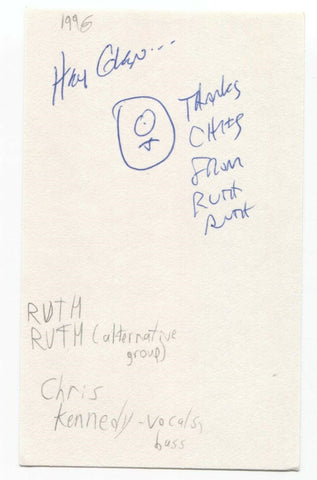 1996
Hey Glen...
Thanks
Chris
From
Ruth
Ruth
RUTH
RUTH (alternative
group)
Chris
Kennedy - vocals,
bass